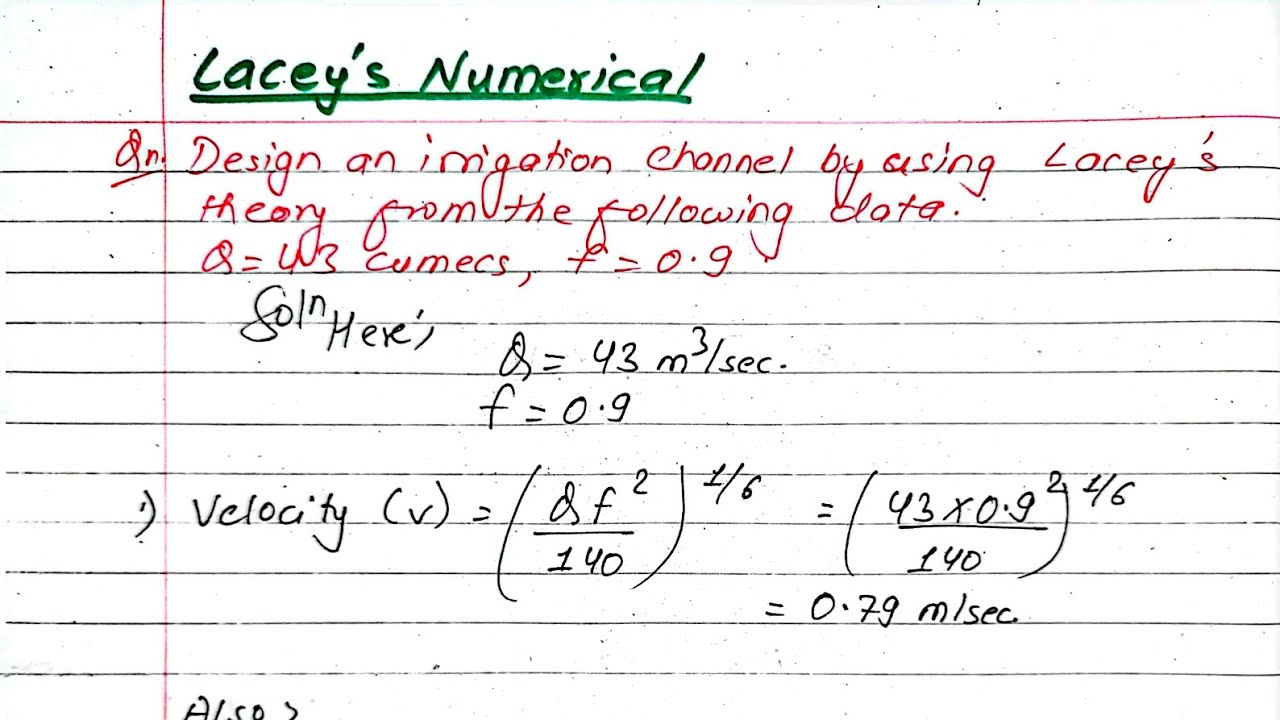 Lacey's Numerical
Qn. Design an irrigation channel by using Lacey's
theory from the following data.
Q = 43 cumecs, f = 0.9
Solⁿ Here,
Q = 43 m³/sec.
f = 0.9
i) Velocity (v) = (Qf²/140)^1/6 = (43×0.9²/140)^1/6
= 0.79 m/sec.
Also,